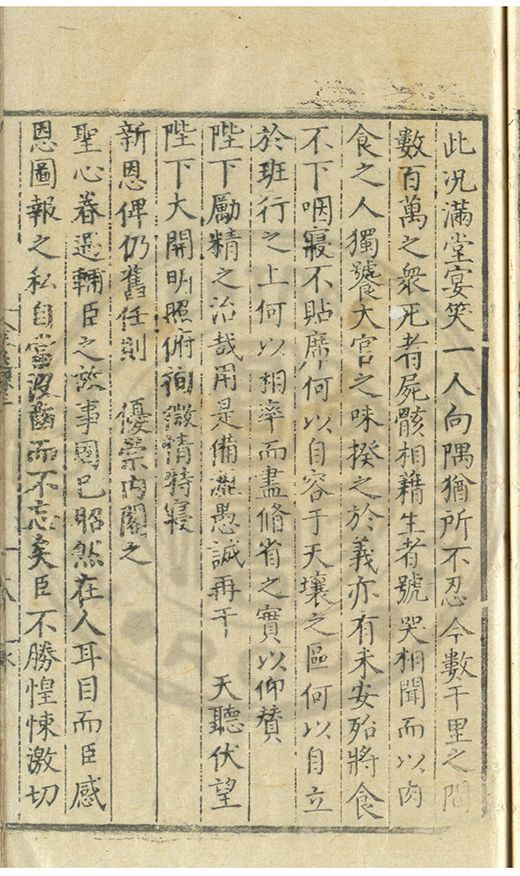 此况滿堂宴笑一人向隅猶所不忍今數千里之間
數百萬之衆死者屍骸相藉生者號哭相聞而以肉
食之人獨饗大官之味揆之於義亦有未安殆將食
不下咽寢不貼席何以自容于天壤之區何以自立
於班行之上何以相率而盡脩省之實以仰賛
陛下勵精之治哉用是備瀝愚誠再干　天聽伏望
陛下大開明照俯徇微情特寢
新恩俾仍舊任則　優崇内閣之
聖心眷遇輔臣之故事固已昭然在人耳目而臣感
恩圖報之私自當没齒而不忘矣臣不勝惶悚激切